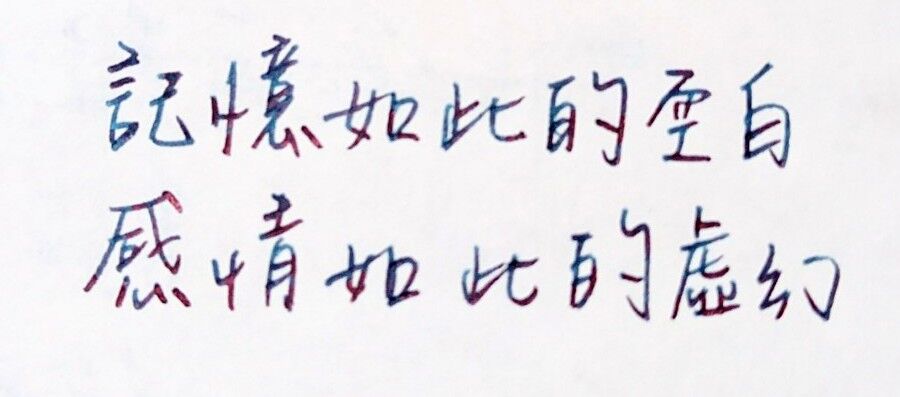 記憶如此的空白
感情如此的虛幻